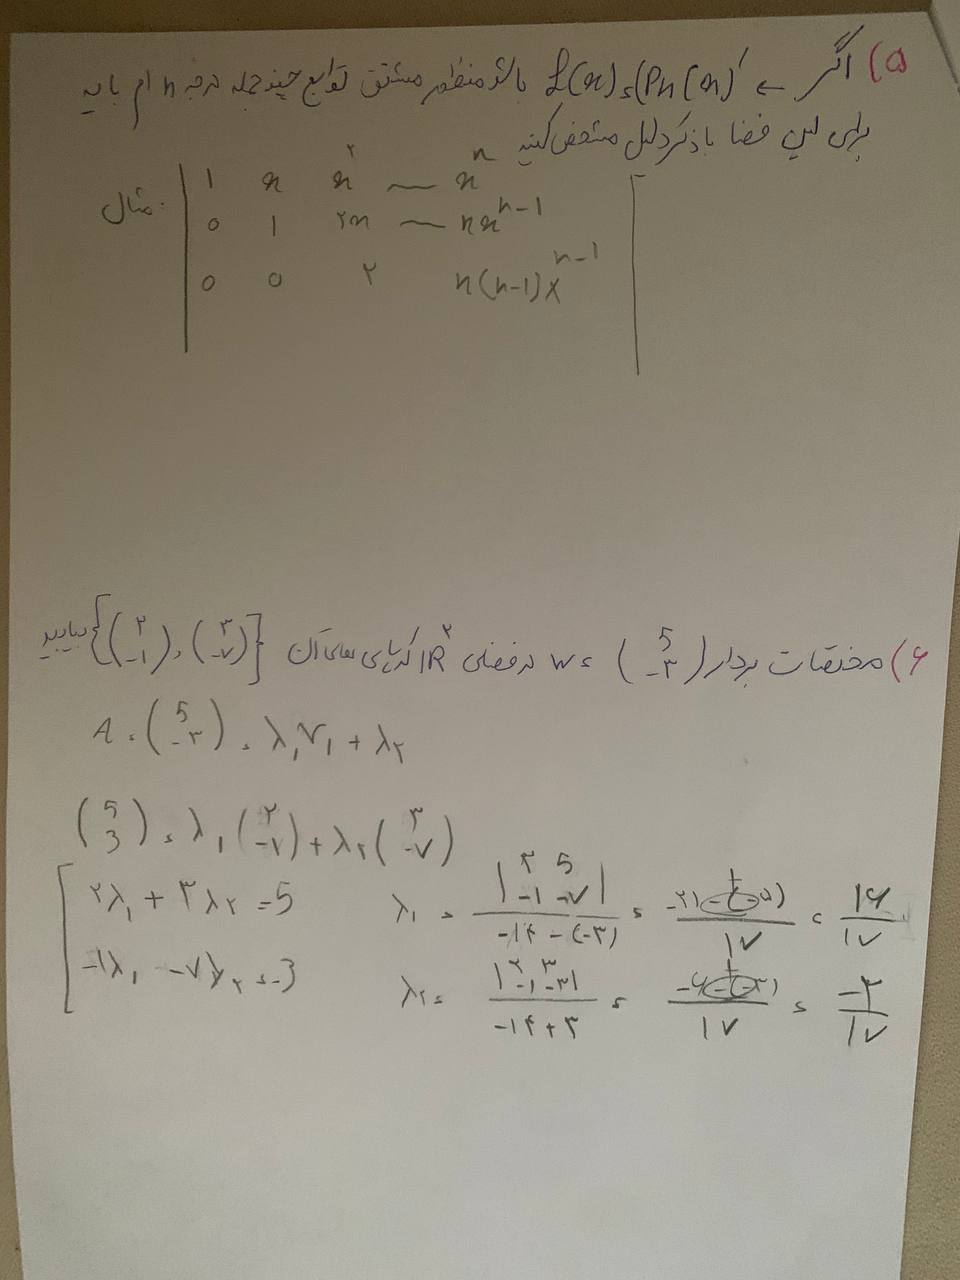 ۵) اگر ← £(x) = (Pn(x))' باشد منظور مشتق توابع چند جمله درجه n ام پایه
برای این فضا با ذکر دلیل مشخص کنید
مثال: | 1 x x^۲ — x^n
0 1 ۲x — nx^{n-1}
0 0 ۲ n(n-1)x^{n-1} |
۶) مختصات بردار (5 -۳) = w در فضای IR^۲ که پایه های آن {(۲ -۱), (۳ -۷)} بیابید
A = (5 -۳) = λ۱v۱ + λ۲
(5 3) = λ۱(۲ -۷) + λ۲(۳ -۷)
۲λ۱ + ۳λ۲ = 5
-1λ۱ - ۷λ۲ = -3
λ۱ = |۳ 5 -۱ -۷| / -۱۴ - (-۳) = / ۱۷ = ۱۶/۱۷
λ۲ = |۲ ۳ -۱ -۳| / -۱۴ + ۳ = / ۱۷ = -۳/۱۷